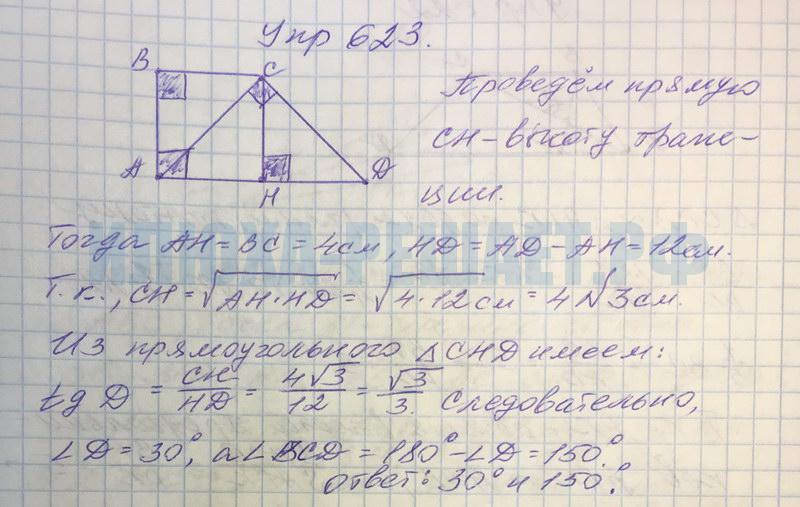 Упр 623.
B
C
A
H
D
Проведём прямую
CH - высоту трапе-
ции.
Тогда AH = BC = 4см, HD = AD - AH = 12см.
Т.к., CH = √AH·HD = √4·12 см = 4√3 см.
Из прямоугольного △CHD имеем:
tg D = CH/HD = 4√3/12 = √3/3. Следовательно,
∠D = 30°, а ∠BCD = 180° - ∠D = 150°.
ответ: 30° и 150°.